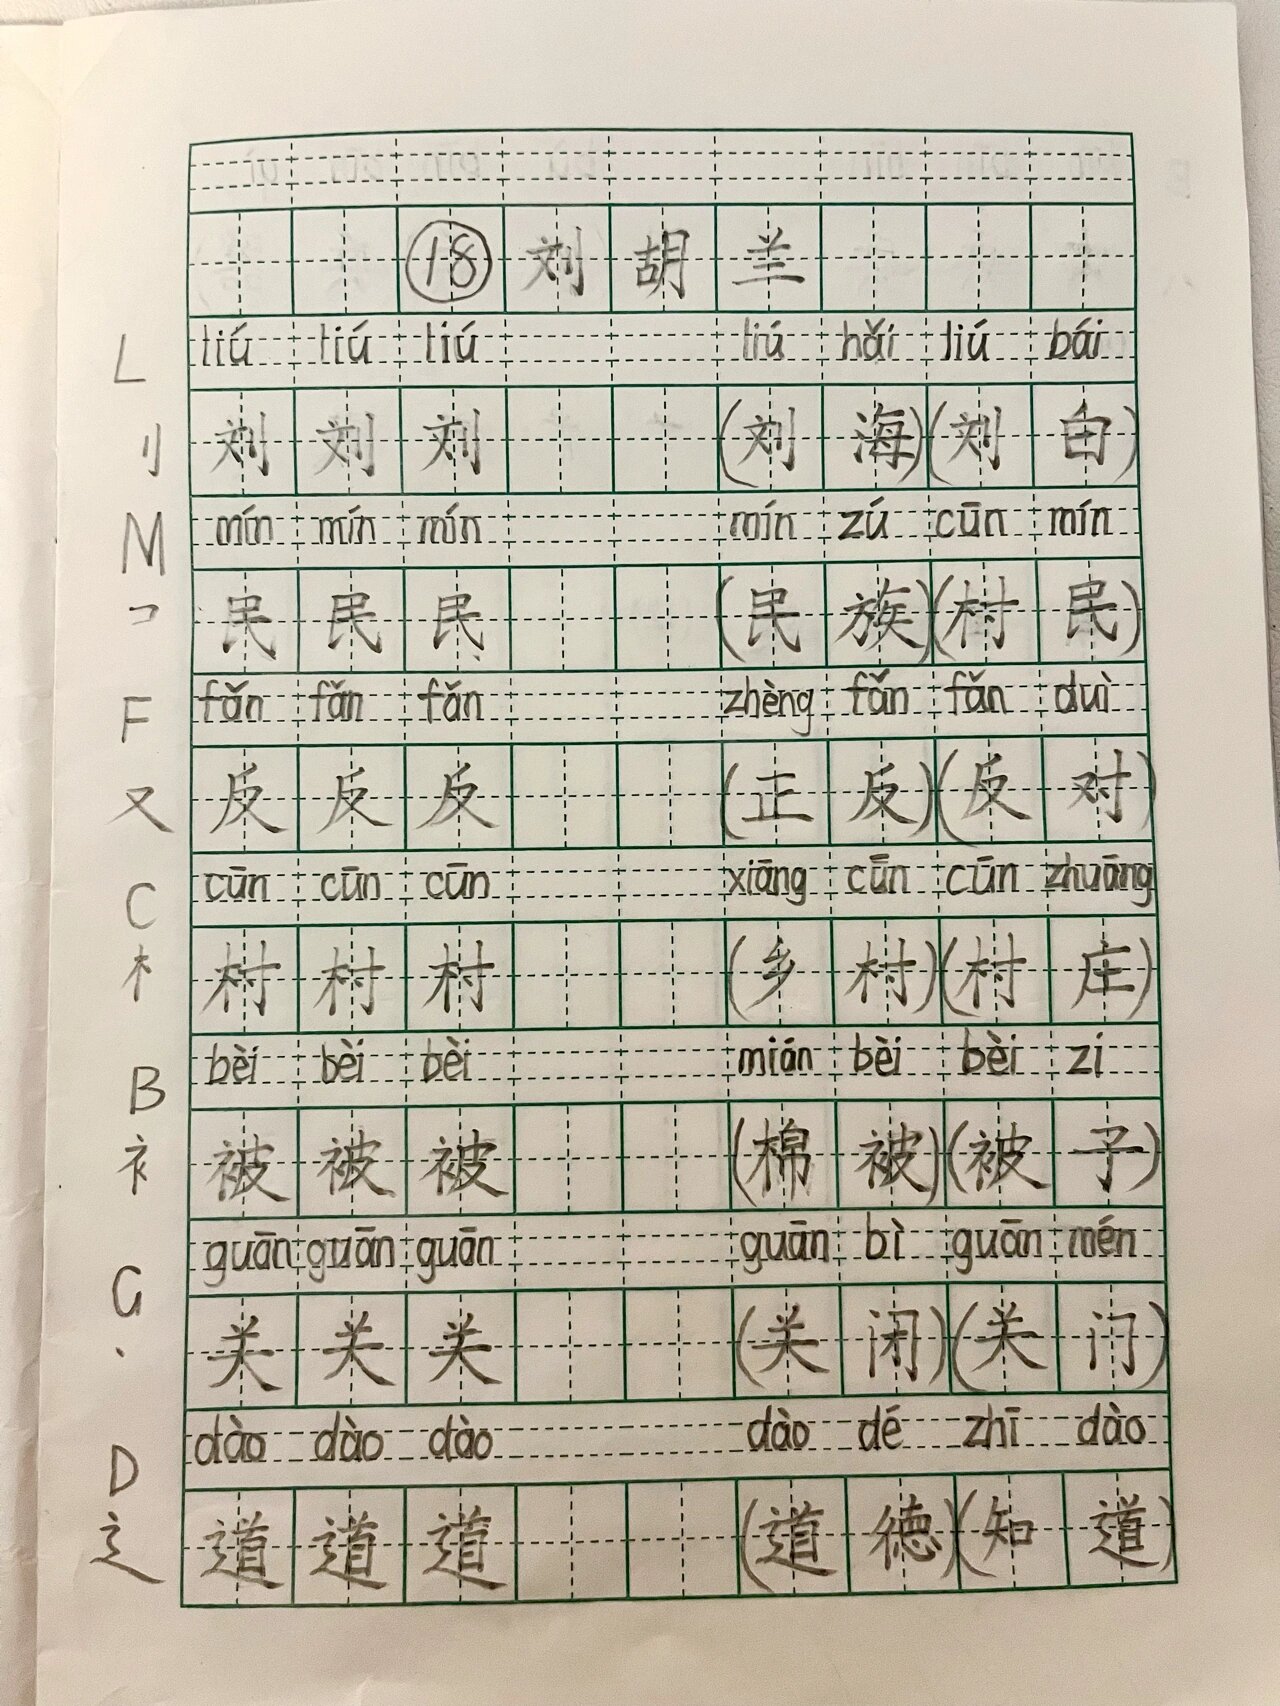 ⑱ 刘 胡 兰
L liú liú liú liú hǎi liú bái
刂 刘 刘 刘 (刘 海) (刘 白)
M mín mín mín mín zú cūn mín
𠃍 民 民 民 (民 族) (村 民)
F fǎn fǎn fǎn zhèng fǎn fǎn duì
又 反 反 反 (正 反) (反 对)
C cūn cūn cūn xiāng cūn cūn zhuāng
木 村 村 村 (乡 村) (村 庄)
B bèi bèi bèi mián bèi bèi zi
衤 被 被 被 (棉 被) (被 子)
G guān guān guān guān bì guān mén
丶 关 关 关 (关 闭) (关 门)
D dào dào dào dào dé zhī dào
辶 道 道 道 (道 德) (知 道)